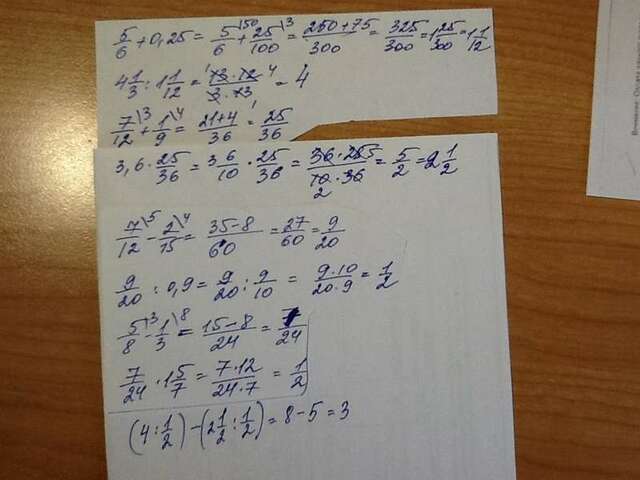 5/6 + 0,25 = 5/6\50 + 25/100\3 = 250+75/300 = 325/300 = 1 25/300 = 1 1/12
4 1/3 : 1 1/12 = 13·12/3·13 = 4
7/12\3 + 1/9\4 = 21+4/36 = 25/36
3,6 · 25/36 = 3 6/10 · 25/36 = 36·25/10·36 = 5/2 = 2 1/2
7/12\5 - 2/15\4 = 35-8/60 = 27/60 = 9/20
9/20 : 0,9 = 9/20 : 9/10 = 9·10/20·9 = 1/2
5/8\3 - 1/3\8 = 15-8/24 = 7/24
7/24 · 1 5/7 = 7·12/24·7 = 1/2
(4 : 1/2) - (2 1/2 : 1/2) = 8 - 5 = 3